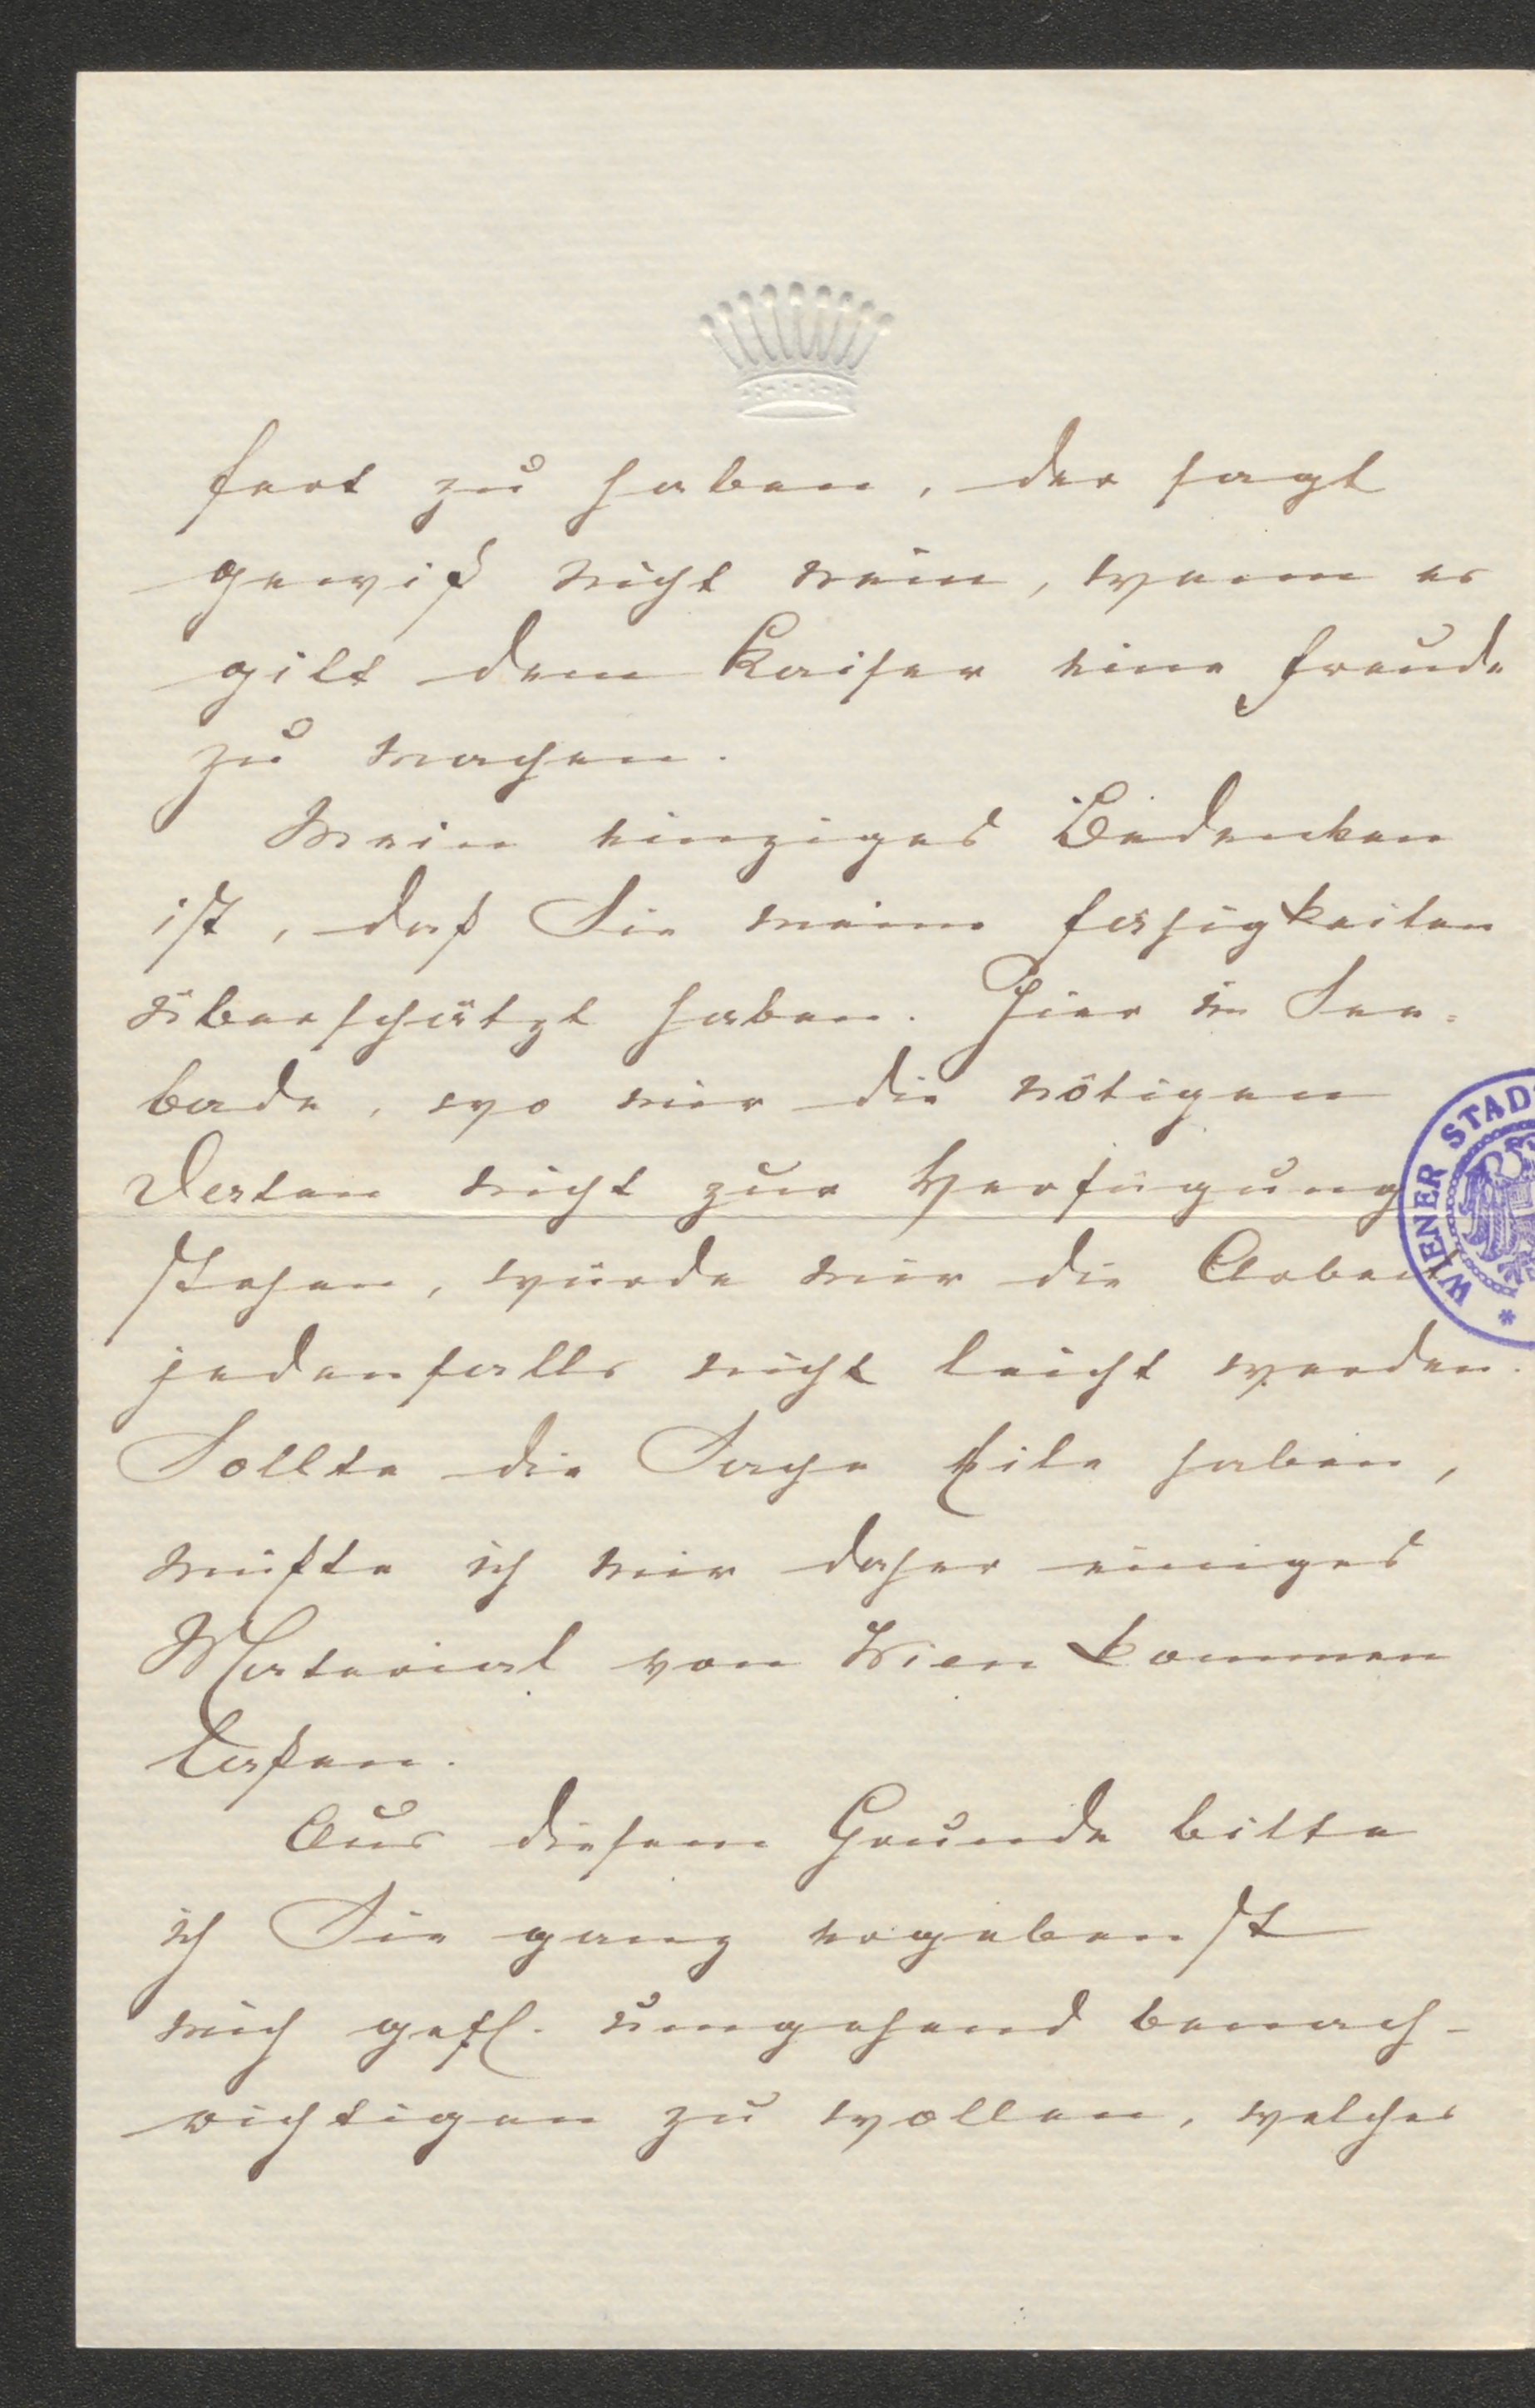 fert zu haben, der sagt
gewiß nicht nein, wenn es
gilt dem Kaiser eine Freude
zu machen.
Mein einziges Bedenken
ist, daß Sie meine Fähigkeiten
überschätzt haben. Hier im See-
bade, wo mir die nötigen
Daten nicht zur Verfügung
stehen, würde mir die Arbeit
jedenfalls nicht leicht werden.
Sollte die Sache Eile haben,
müßte ich mir daher einiges
Material von Wien kommen
laßen.
Aus diesem Grunde bitte
ich Sie ganz ergebenst
mich gefl. umgehend benach-
richtigen zu wollen, welches
WIENER STAD